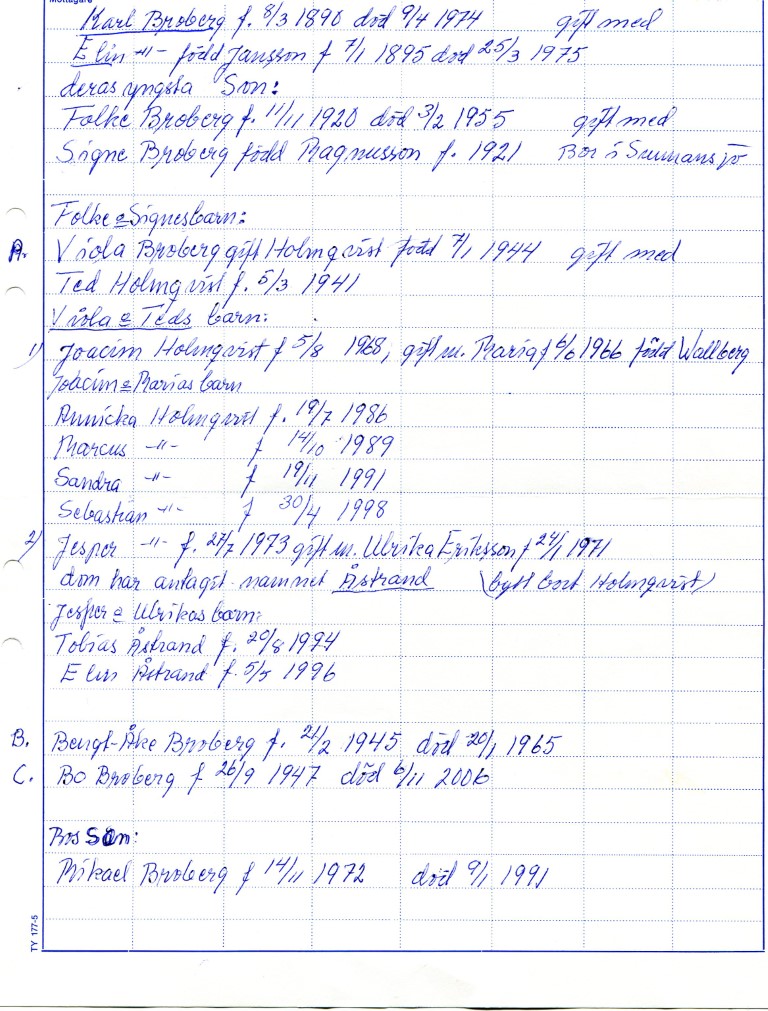 Mottagare
Karl Broberg f. 8/3 1890 död 9/4 1974 gift med
Elin -"- född Jansson f 7/1 1895 död 25/3 1975
deras yngsta Son:
Folke Broberg f. 11/11 1920 död 3/2 1955 gift med
Signe Broberg född Magnusson f. 1921 Bor i
Folke o Signes barn:
A. Viola Broberg gift Holmqvist född 7/1 1944 gift med
Ted Holmqvist f. 5/3 1941
Viola o Teds barn:
1) Joacim Holmqvist f 5/8 1968, gift m. Maria f 6/6 1966 född Wallberg
Joacim o Marias barn
Annicka Holmqvist f. 19/7 1986
Marcus -"- f 14/10 1989
Sandra -"- f 19/11 1991
Sebastian -"- f 30/4 1998
2) Jesper -"- f. 27/7 1973 gift m. Ulrika Eriksson f 24/1 1971
dom har antagit namnet Åstrand (bytt bort Holmqvist)
Jesper o Ulrikas barn:
Tobias Åstrand f. 20/8 1994
Elin Åstrand f. 5/5 1996
B. Bengt-Åke Broberg f. 21/2 1945 död 20/1 1965
C. Bo Broberg f 26/9 1947 död 6/11 2006
Bos Son:
Mikael Broberg f 14/11 1972 död 9/1 1991
TY 177-5